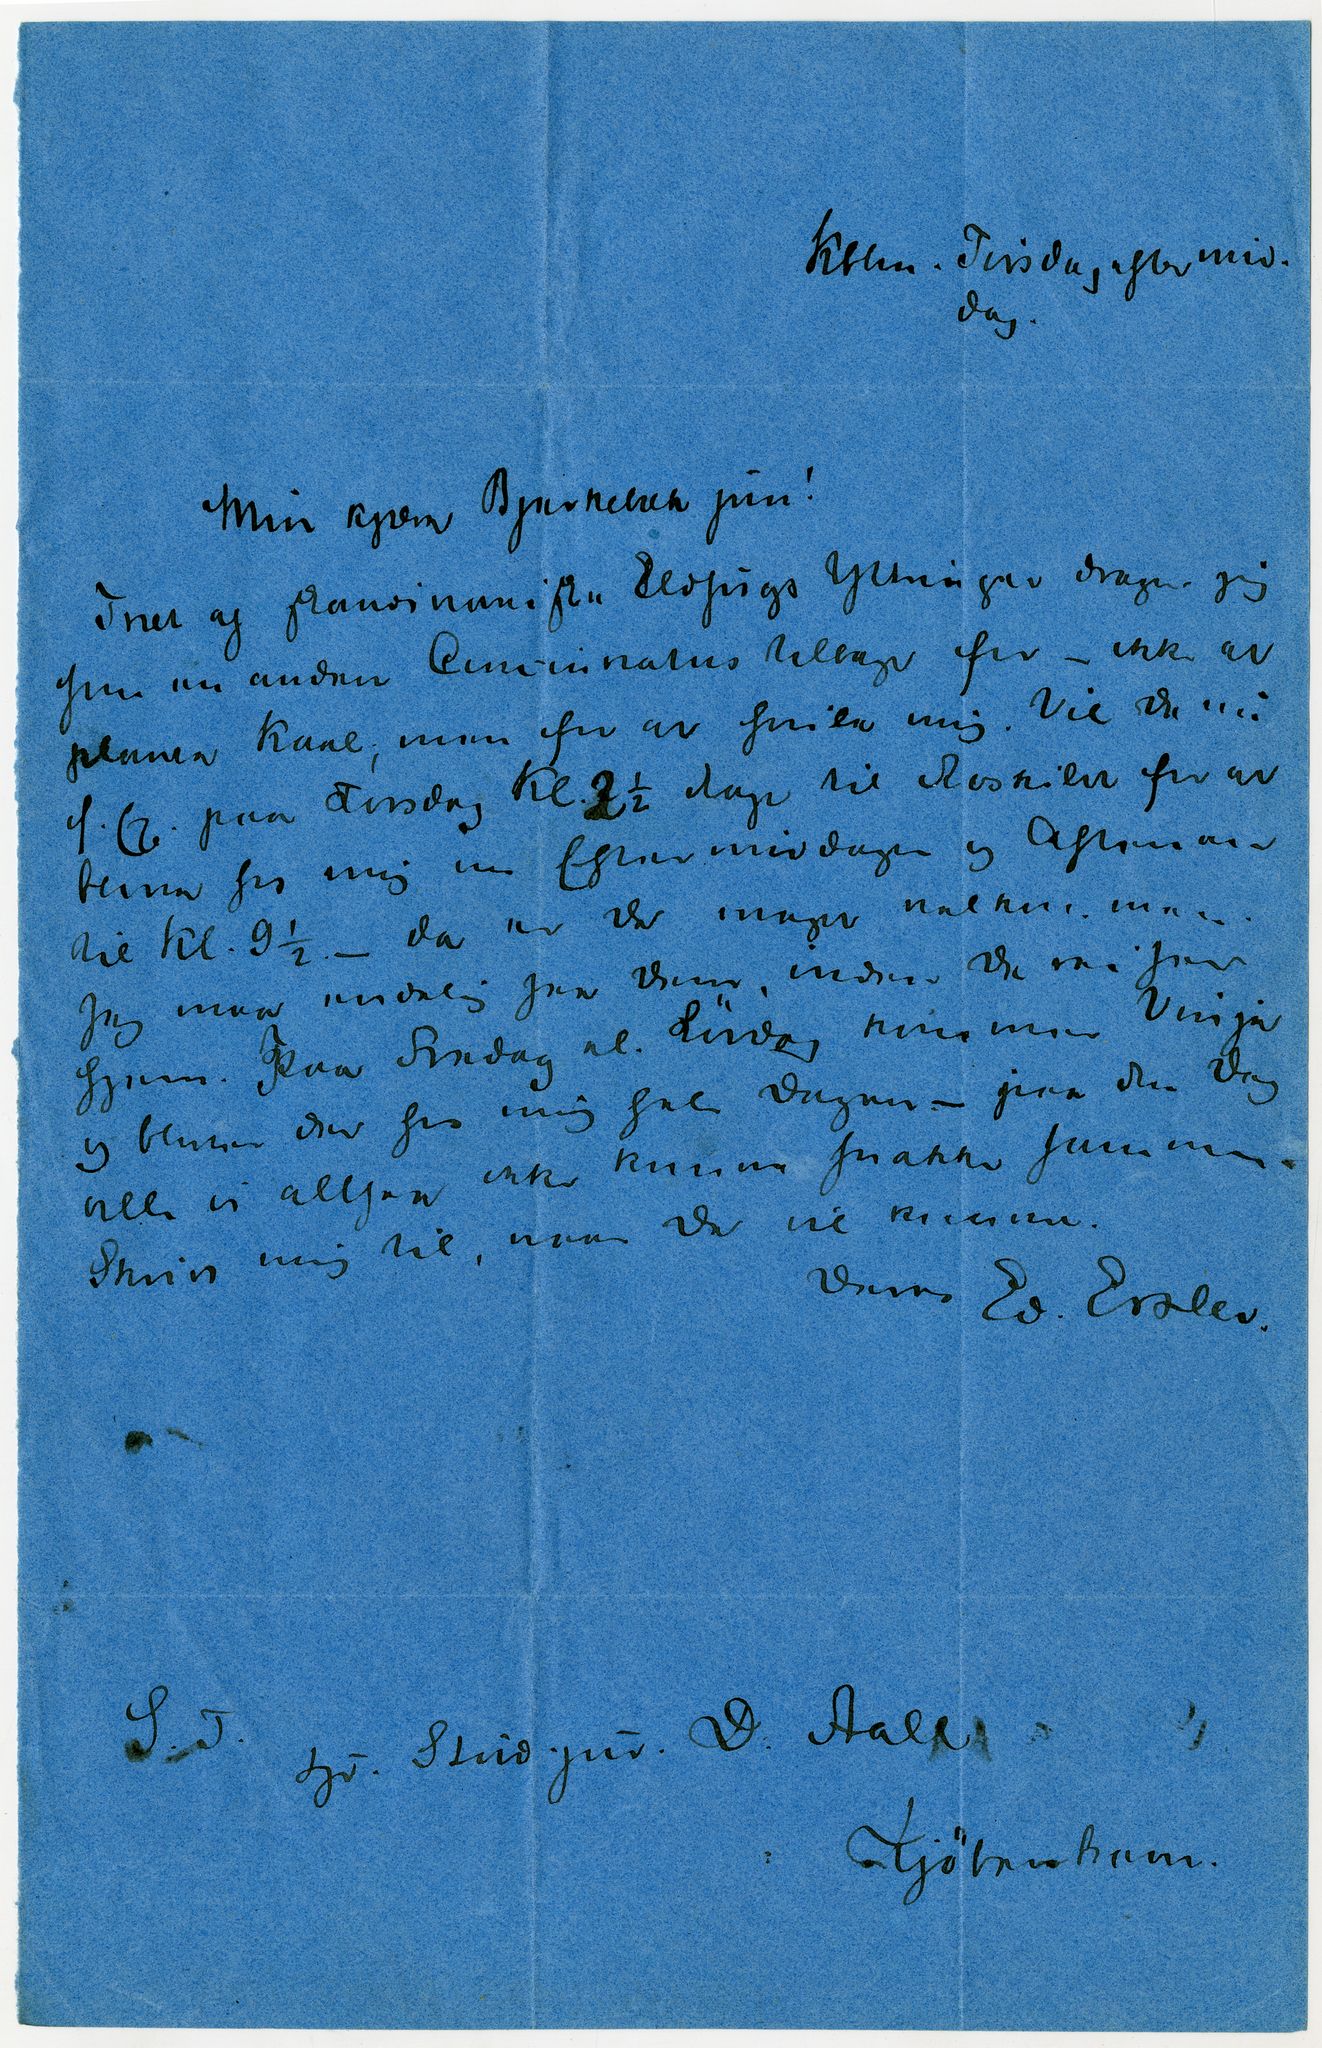 Kbhn. Tirsdag eftermid.
dag.
Min kjære Bjerkebæk jun!
Træt af skandinaviske Ildhugs Yttringer drager jeg
som en anden Cincinnatus tilbage for – ikke at
plante Kaal, men for at hvile mig. Vil De nu
f. Ex. paa Torsdag Kl. 2½ tage til Roskilde for at
blive hos mig om Eftermiddagen og Aftenen
til Kl. 9½ – da er De meget velkommen.
Jeg maa endelig see Dem, inden De rejser
hjem. Paa Fredag el. Lördag kommer Vinje
og bliver der hos mig hele Dagen – paa den Dag
ville vi altsaa ikke kunne snakke sammen.
Skriv mig til, naar De vil komme.
Deres Ed. Erslev.
S. T.
Hr. Stud. jur. D. Aall
Kjöbenhavn.